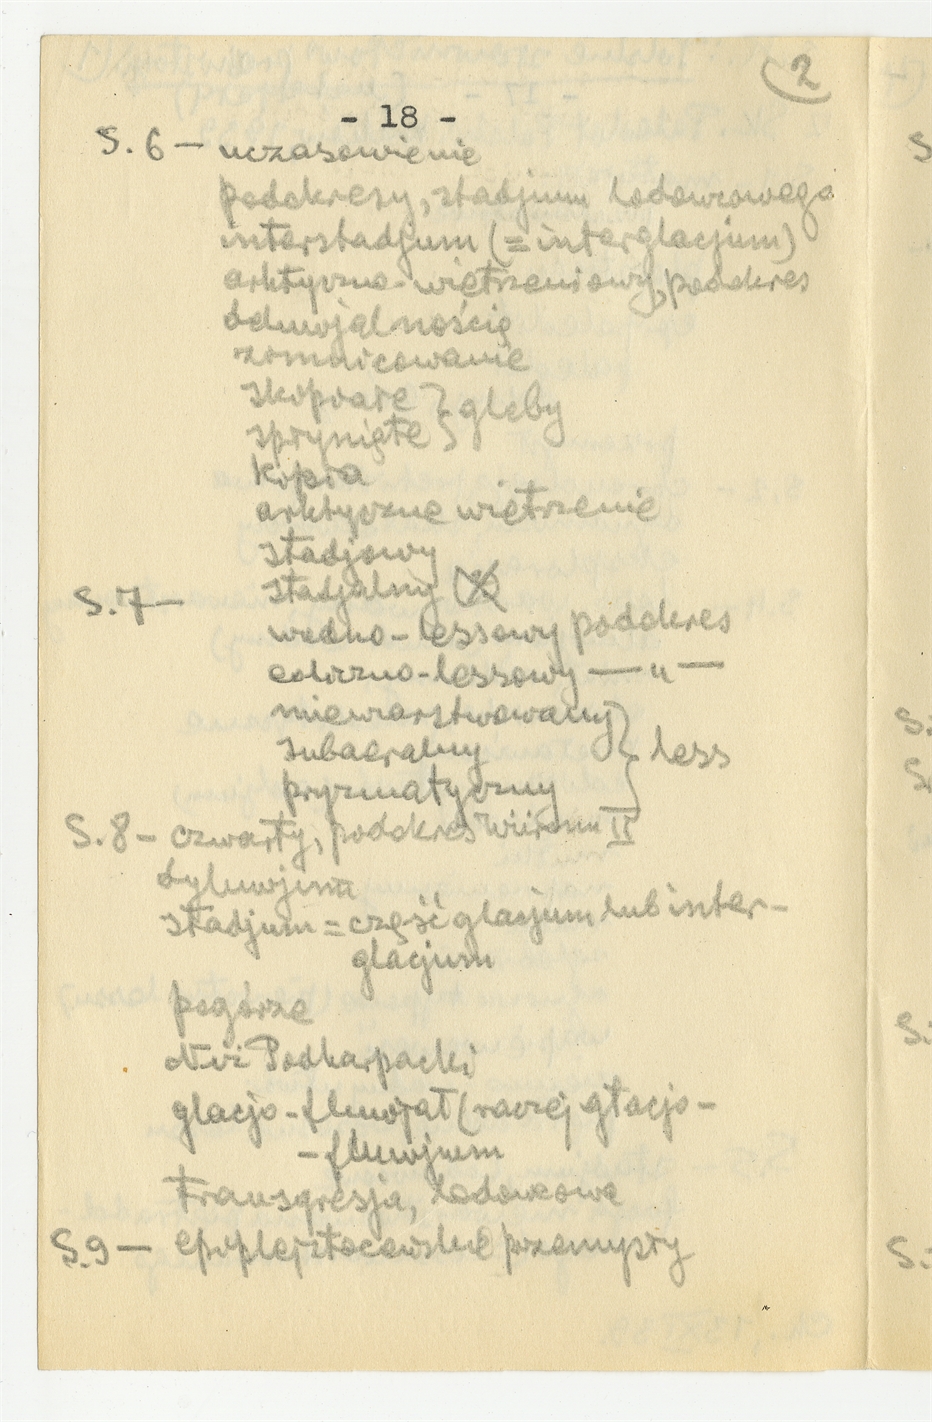 2
- 18 -
S. 6 — uczasowienie
podokresy, stadjum lodowcowego
interstadjum (= interglacjum)
arktyczno-wietrzeniowy, podokres
zomarcowanie
} gleby
kopra
arktyczne wietrzenie
stadjowy
S. 7 — stadjalny
wodno-lessowy podokres
eoliczno-lessowy — " —
niewarstwowany
subaeralny } less
pryzmatyczny
S. 8 — czwarty, podokres Würmu II
dyluwjum
stadjum = część glacjum lub inter-
glacjum
pogórze
Podkarpacki
glacjo-fluwjał (raczej glacjo-
-fluwjum
transgresja, lodowcowa
S. 9 — epiplejstoceńskie przemysły